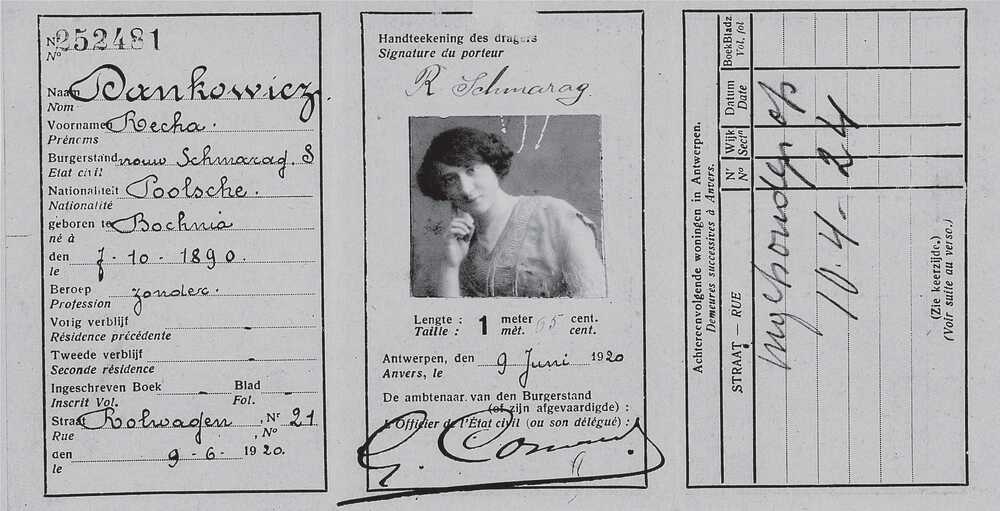 Nr 252481
No
Naam Dankowicz
Nom
Voornamen Recha.
Prénoms
Burgerstand vrouw Schmarag. S
Etat civil
Nationaliteit Poolsche.
Nationalité
geboren te Bochnia
né à
den 7-10-1890.
le
Beroep zonder.
Profession
Vorig verblijf
Résidence précédente
Tweede verblijf
Seconde résidence
Ingeschreven Boek Blad
Inscrit Vol. Fol.
Straat Kolwagen, Nr 21
Rue , No
den 9-6-1920.
le
Handteekening des dragers
Signature du porteur
R Schmarag.
Lengte : 1 meter 65 cent.
Taille : mèt. cent.
Antwerpen, den 9 Juni 1920
Anvers, le
De ambtenaar van den Burgerstand
(of zijn afgevaardigde) :
L'Officier de l'État civil (ou son délégué) :
Achtereenvolgende woningen in Antwerpen.
Demeures successives à Anvers.
STRAAT — RUE
Nr
No
Wijk
Sectn
Datum
Date
Boek Bladz.
Vol. fol
op
10.4-24
(Zie keerzijde.)
(Voir suite au verso.)